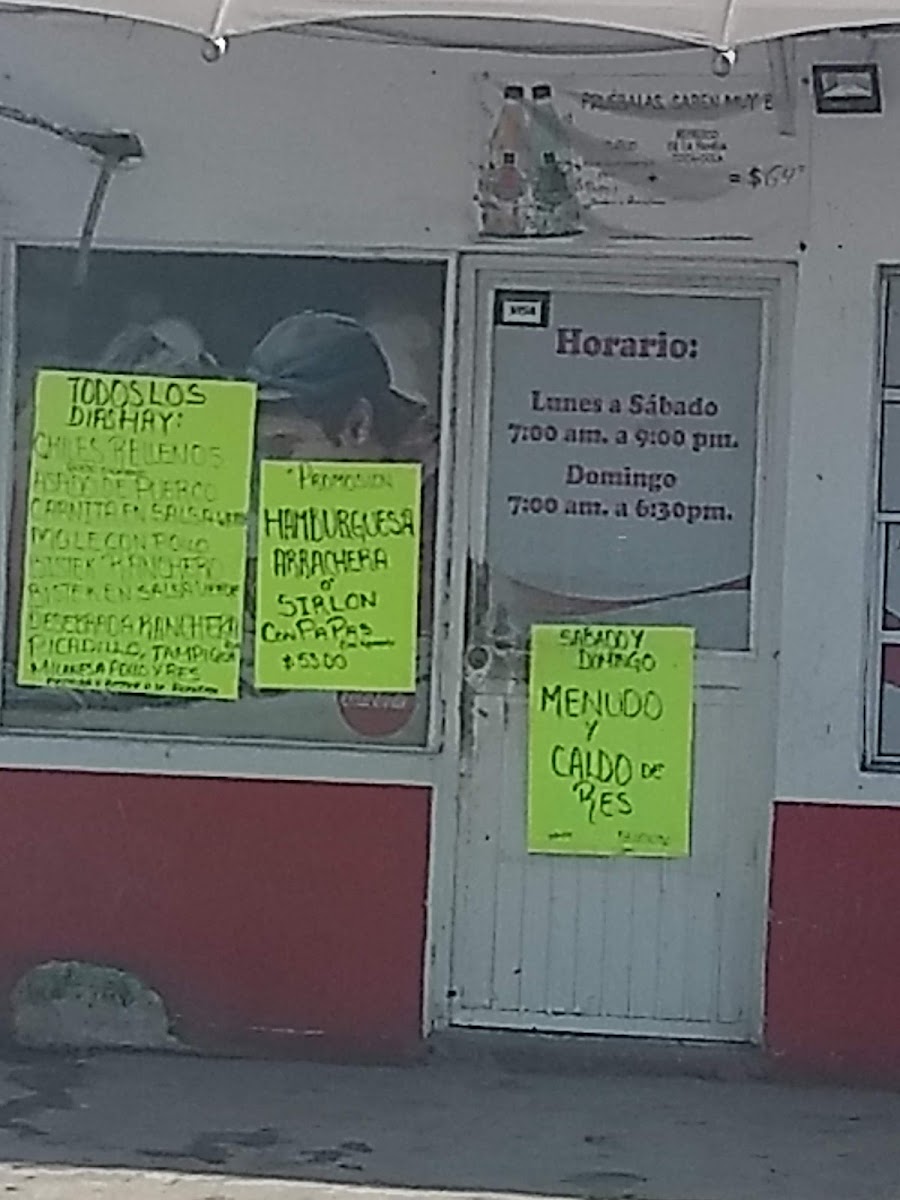 PRUÉBALAS, SABEN MUY B
REFRESCO
DE LA FAMILIA
COCA-COLA
+
= $64
VISA
Horario:
Lunes a Sábado
7:00 am. a 9:00 pm.
Domingo
7:00 am. a 6:30pm.
TODOS LOS
DIAS HAY:
CHILES RELLENOS
ASADO DE PUERCO
CARNITA EN SALSA
MOLE CON POLLO
BISTEK RANCHERO
BISTEK EN SALSA VERDE
DESEBRADA RANCHERA
PICADILLO, TAMPIQUEÑA
MILANESA POLLO Y RES
"PROMOSION
HAMBURGUESA
ARRACHERA
o'
SIRLON
CON PAPAS
$55.00
SABADO Y
DOMINGO
MENUDO
Y
CALDO DE
RES